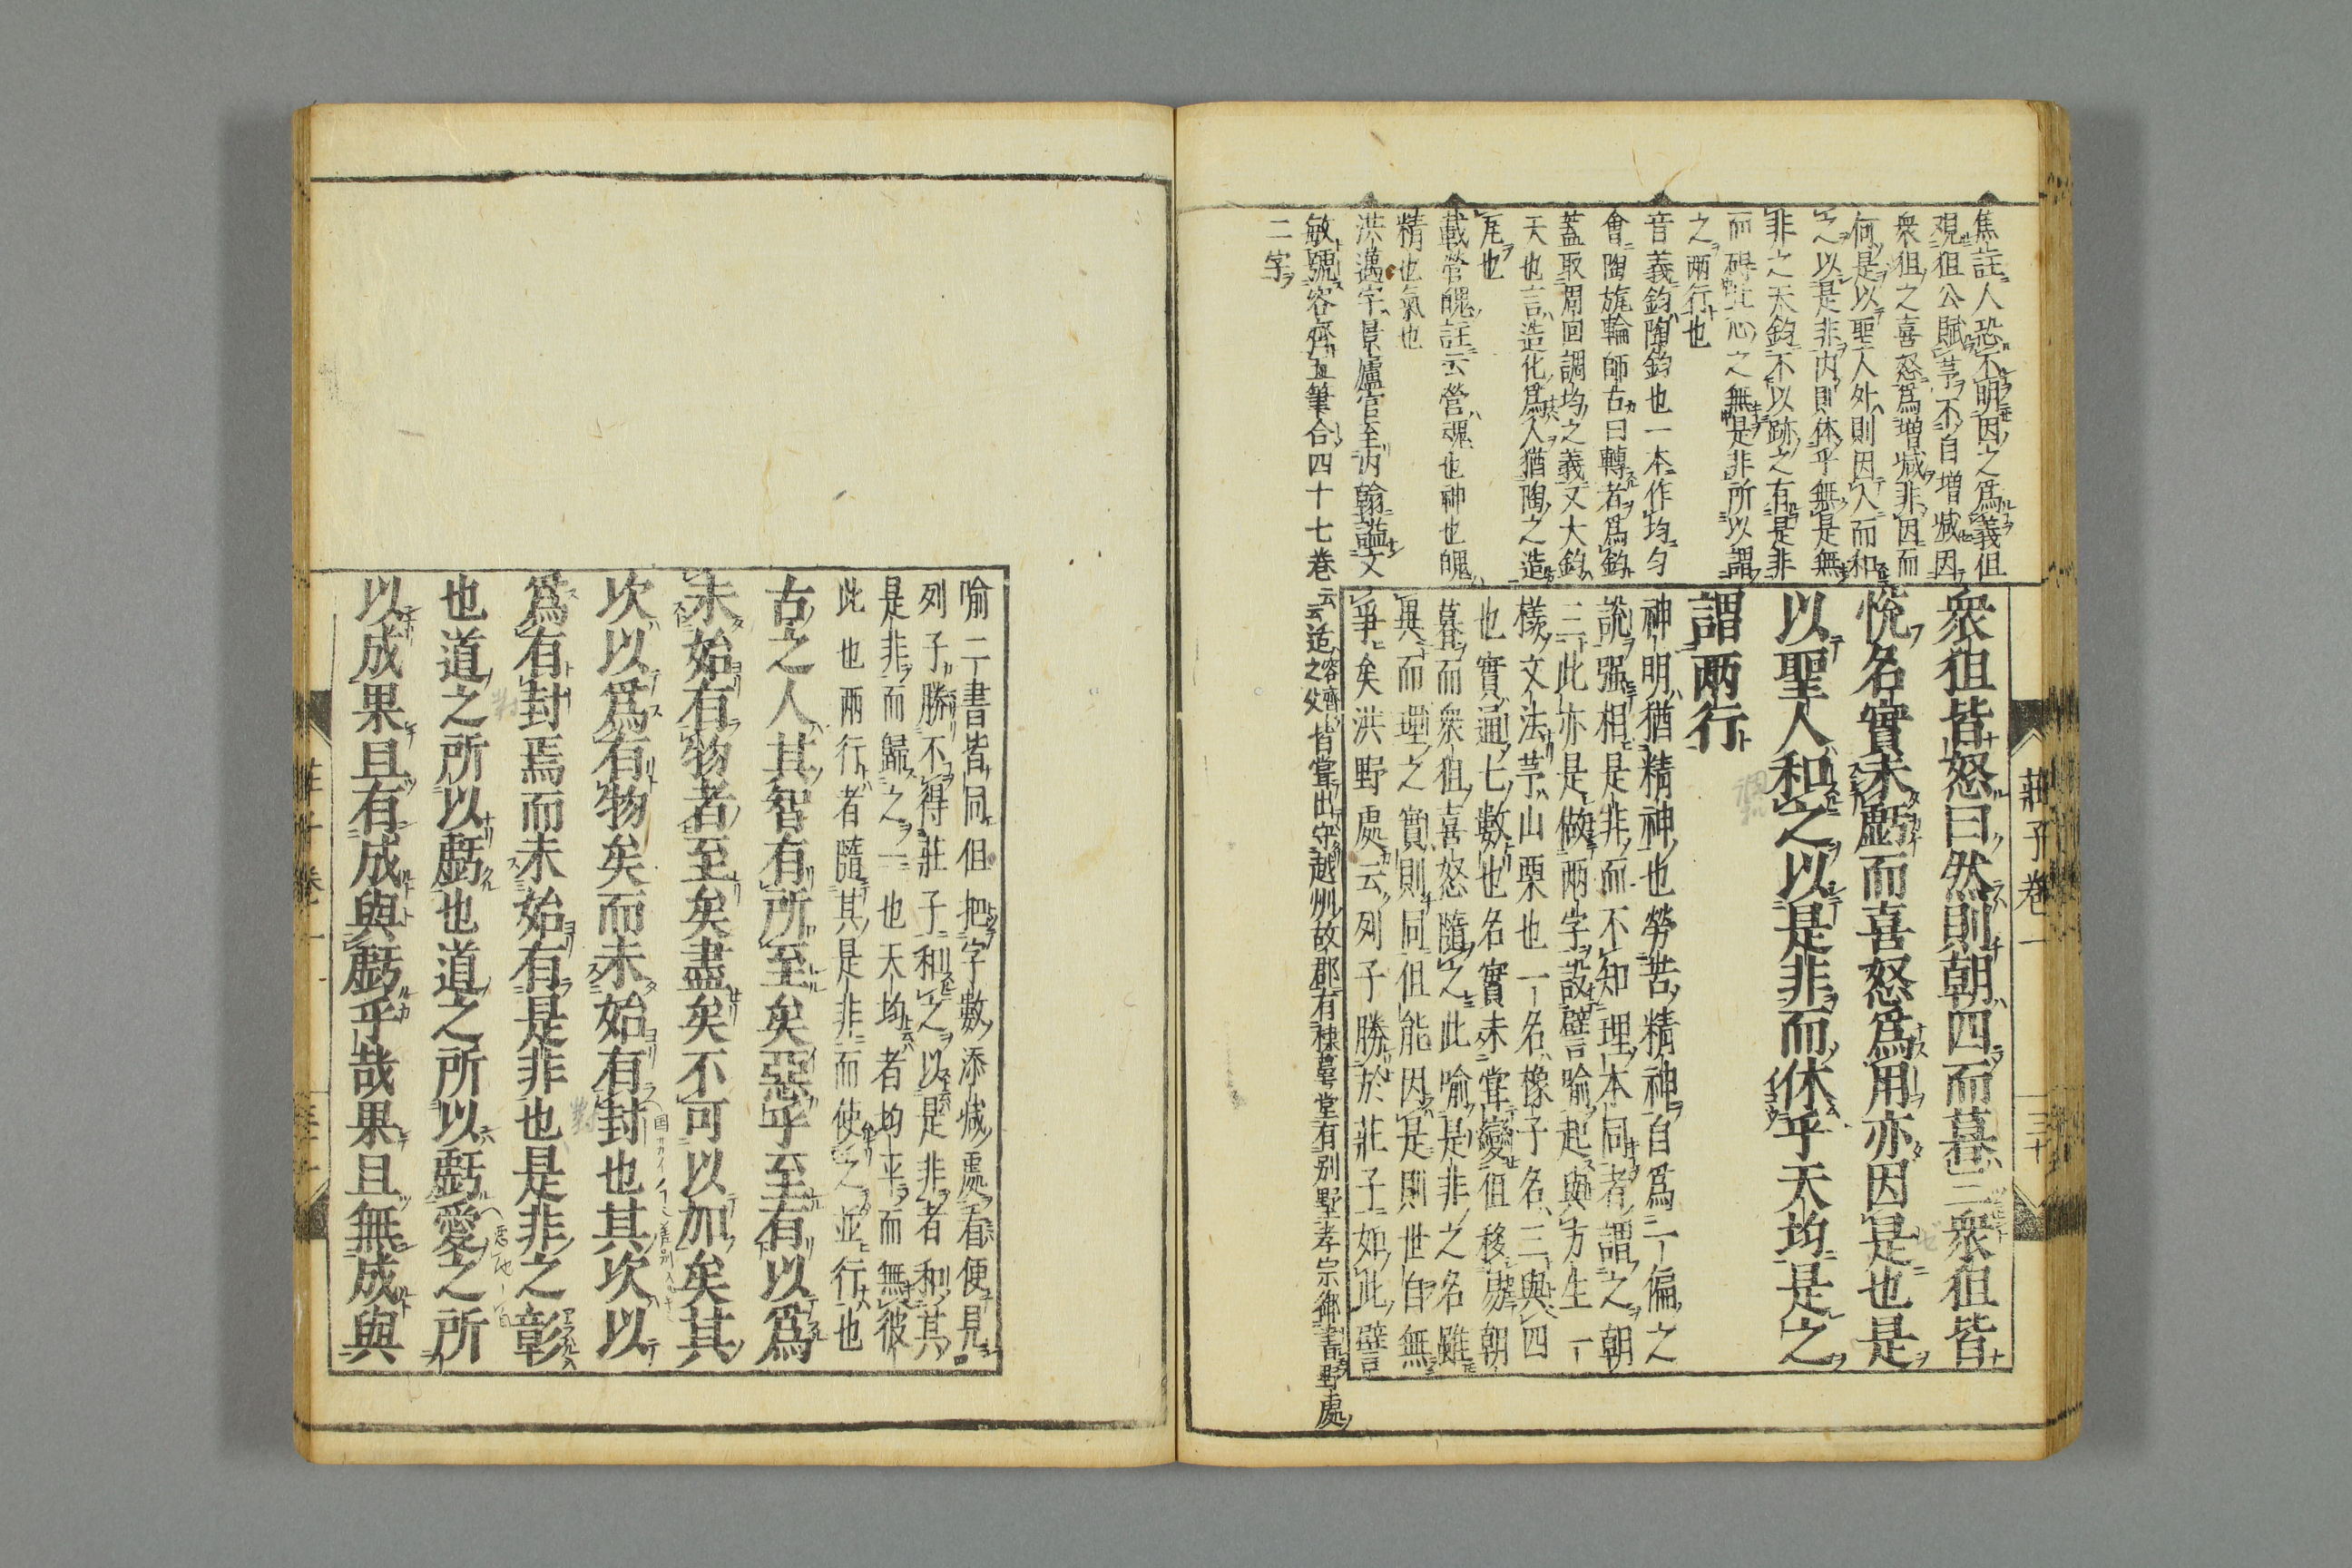 焦註人恐不明因之爲義但
觀狙公賦芧不自增減因
衆狙之喜怒爲增減非因而
何是以聖人外則因人而和
之以是非内則休乎無是無
非之天鈞不以跡之有是非
而碍吾心之無是非所以謂
之兩行也
音義鈞陶鈞也一本作均勻
會陶旊輪師古曰轉者爲鈞
蓋取周回調均之義又大鈞
天也言造化爲人猶陶之造
瓦也
載營魄註云營魂也神也魄
精也氣也
洪邁字景盧官至内翰謚文
敏號容齊五筆合四十七卷云云适之父
二字
衆狙皆怒曰然則朝四而暮三衆狙皆
悅名實未虧而喜怒爲用亦因是也是
以聖人和之以是非而休乎天均是之
謂兩行
神明猶精神也勞苦精神自爲一偏之
說強相是非而不知理本同者謂之朝
三此亦是做兩字設譬喻起與方生一
樣文法芧山栗也一名橡子名三與四
也實通七數也名實未嘗變但移易朝
暮而衆狙喜怒隨之此喻是非之名雖
異而理之實則同但能因是則世自無
爭矣洪野處云列子勝於莊子如此譬
容齊皆嘗出守越州故郡有棣萼堂有別墅孝宗御書野處
莊子卷一
三十
喻二書皆同但把字數添減處看便見
列子勝不得莊子和之以是非者和其
是非而歸之一也天均者均平而無彼
此也兩行者隨其是非而使之並行也
古之人其智有所至矣惡乎至有以爲
未始有物者至矣盡矣不可以加矣其
次以爲有物矣而未始有封也其次以
爲有封焉而未始有是非也是非之彰
也道之所以虧也道之所以虧愛之所
以成果且有成與虧乎哉果且無成與